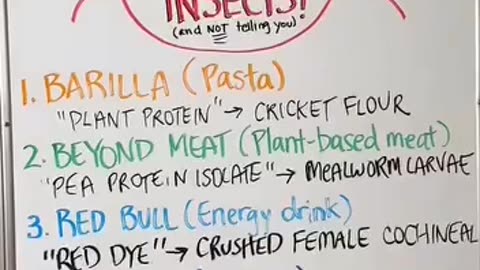 INSECTS!
(and NOT telling you)
1. BARILLA (Pasta)
"PLANT PROTEIN" → CRICKET FLOUR
2. BEYOND MEAT (Plant-based meat)
"PEA PROTEIN ISOLATE" → MEALWORM LARVAE
3. RED BULL (Energy drink)
"RED DYE" → CRUSHED FEMALE COCHINEAL